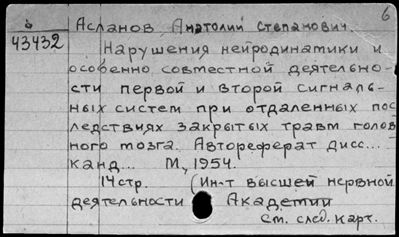 6
б Асланов, Анатолий Степанович.
43432
Нарушения нейродинатики и
особенно совтестной деятельно-
сти первой и второй сигналь-
ных систем при отдаленных пос
ледствиях закрытых травм голов
ного тозга. Автореферат дисс...
канд... М, 1954.
14 стр. (Ин-т высшей нервной
деятельности Академии
См. след. карт.